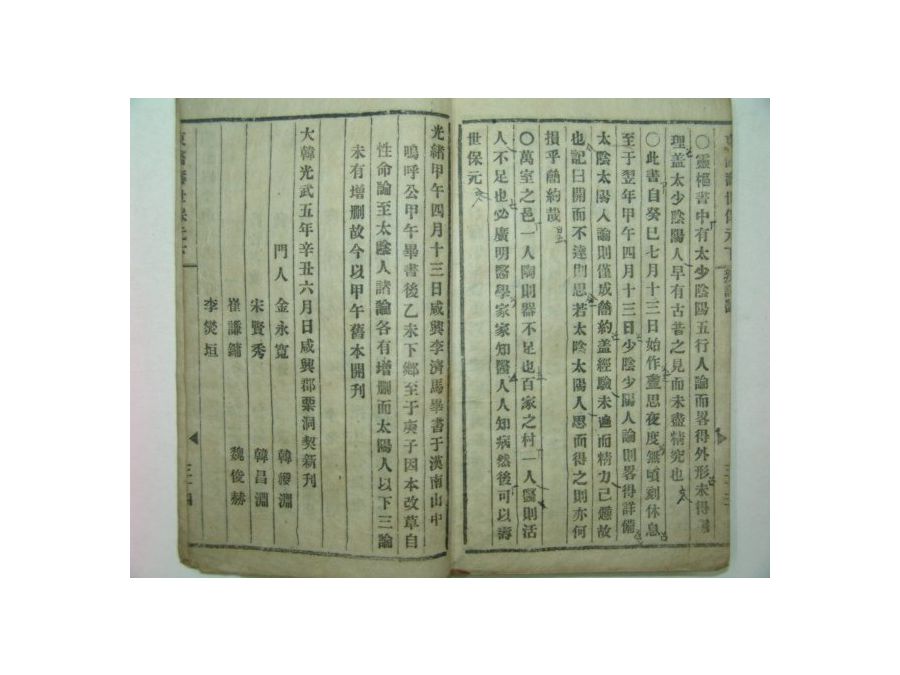 ○靈樞書中有太少陰陽五行人論而畧得外形未得臟
理盖太少陰陽人早有古昔之見而未盡精究也
○此書自癸巳七月十三日始作晝思夜度無頃刻休息
至于翌年甲午四月十三日少陰少陽人論則畧得詳備
太陰太陽人論則僅成簡約盖經驗未遍而精力已憊故
也記曰開而不達則思若太陰太陽人思而得之則亦何
損乎簡約哉
○萬室之邑一人陶則器不足也百家之村一人醫則活
人不足也必廣明醫學家家知醫人人知病然後可以壽
世保元
光緖甲午四月十三日咸興李濟馬畢書于漢南山中
嗚呼公甲午畢書後乙未下鄕至于庚子因本改草自
性命論至太陰人諸論各有增刪而太陽人以下三論
未有增刪故今以甲午舊本開刊
大韓光武五年辛丑六月日咸興郡栗洞契新刊
門人 金永寬 韓稷淵
宋賢秀 韓昌淵
崔謙鏞 魏俊赫
李燮垣